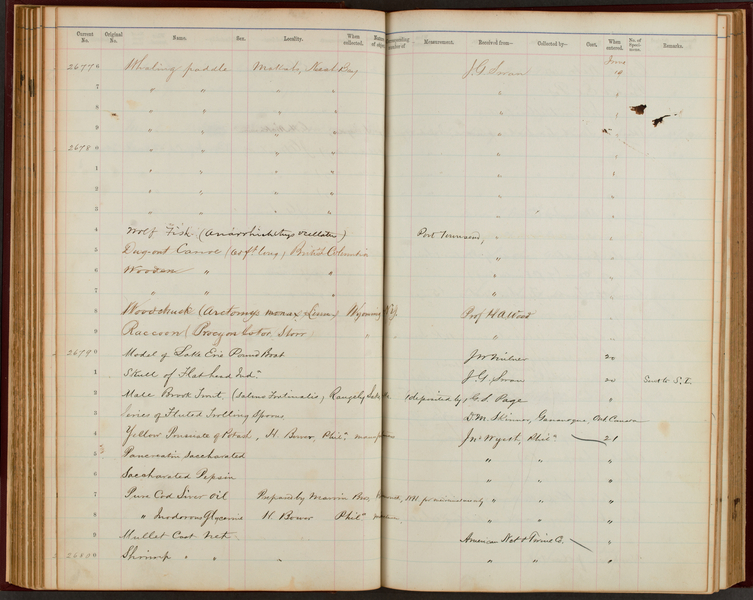 Current No. Original No. Name. Sex. Locality. When collected. Measurement. Received from— Collected by— Cost. When entered. No. of Specimens. Remarks.
June
26770 Whaling paddle Makah, Neah Bay J. G. Swan 19
7 " " " " " "
8 " " " "
9 " " " "
26780 " " " "
1 " " " "
2 " " " "
3 " " " "
4 Wolf Fish (Anarrhichthys ocellatus) Port Townsend, "
5 Dugout Canoe British Columbia "
6 Wooden " "
7 " " "
8 Woodchuck (Arctomys monax, Linn.) Wyoming N.Y. Prof H A Ward
9 Raccoon (Procyon lotor, Storr) " " "
26790 Model of Lake Erie Pound Boat J W Milner 20
1 Skull of Flat head Indn. J. G. Swan 20 Sent to S.I.
2 Male Brook Trout, (Salmo Fontinalis) Rangely Lake Me deposited by G. S. Page "
3 Series of Fluted Trolling Spoons D. M. Skinner, Gananoque, Ont Canada
4 Yellow Prussiate of Potash, H. Bower, Phila. Jno Wyeth, Phila 21
5 Pancreatin Saccharated " " "
6 Saccharated Pepsin " " "
7 Pure Cod Liver Oil Prepared by Marvin Bros, " " "
8 " Inodorous Glycerine H. Bower Phila " " "
9 Mullet Cast Net. American Net & Twine Co. "
26800 Shrimp " " " " "